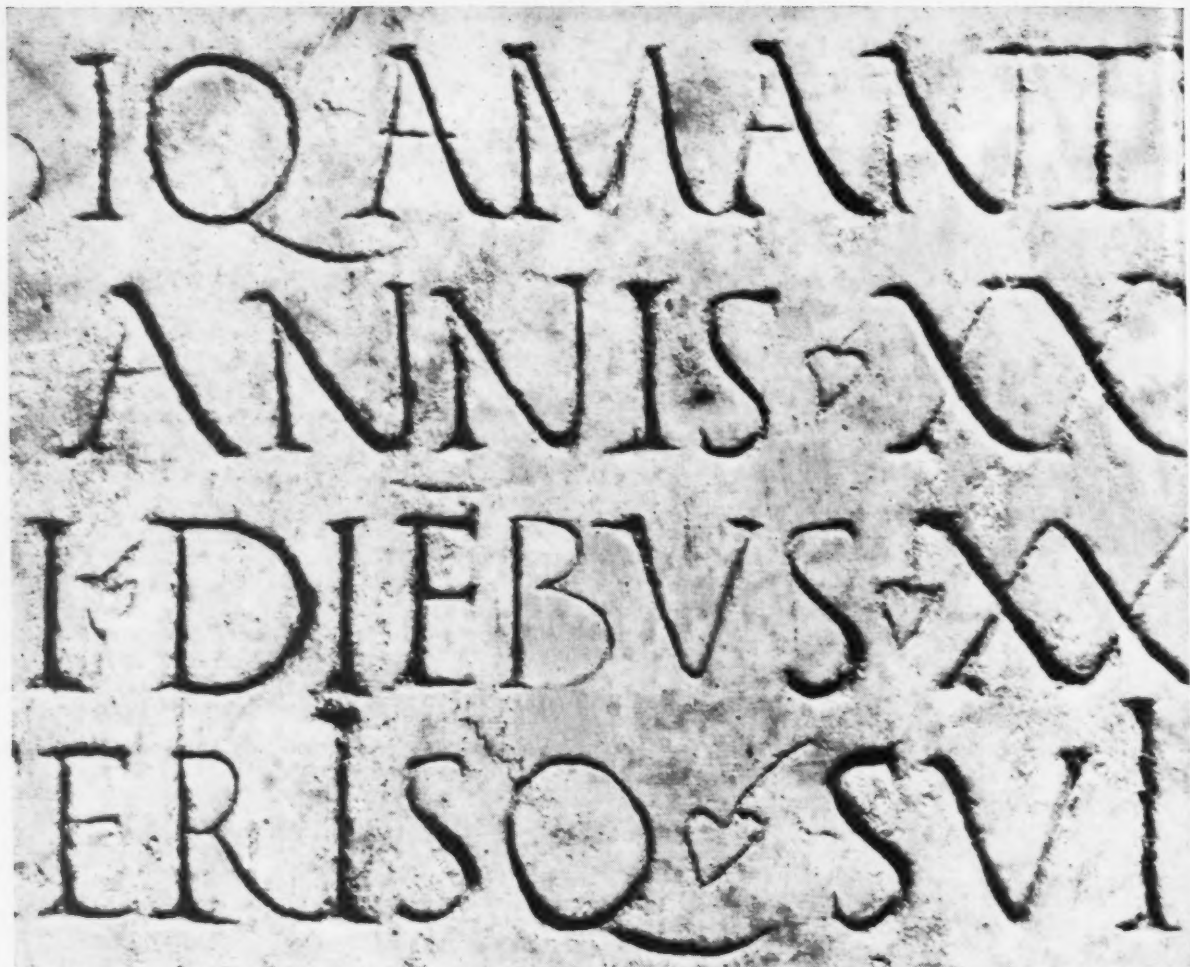 BIQ AMANTI
ANNIS ❦ XX
I ❦ DIĒBVS ❦ XX
ERISQ ❦ SVI